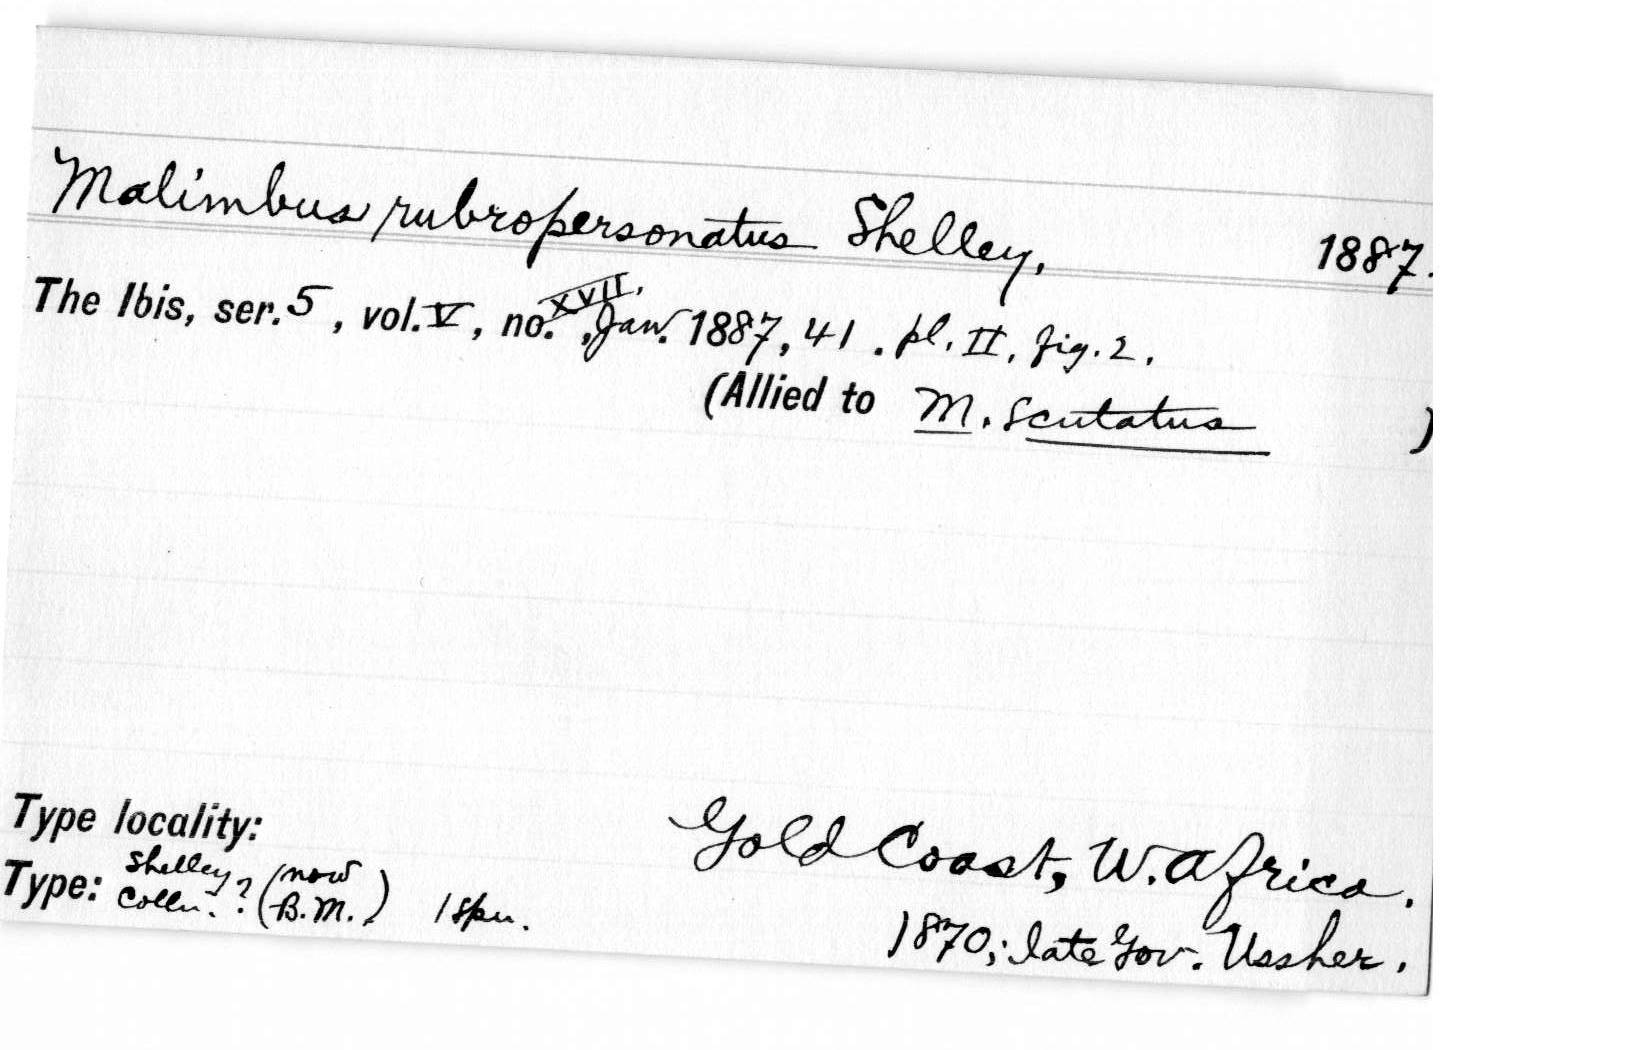 Malimbus rubropersonatus Shelley, 1887.
The Ibis, ser. 5, vol. V, no. XVII, Jan. 1887, 41. pl. II, fig. 2.
(Allied to M. scutatus )
Type locality: Gold Coast, W. Africa.
Type: Shelley Colln. ? (now B.M.) 1 spn. 1870; late Gov. Ussher.